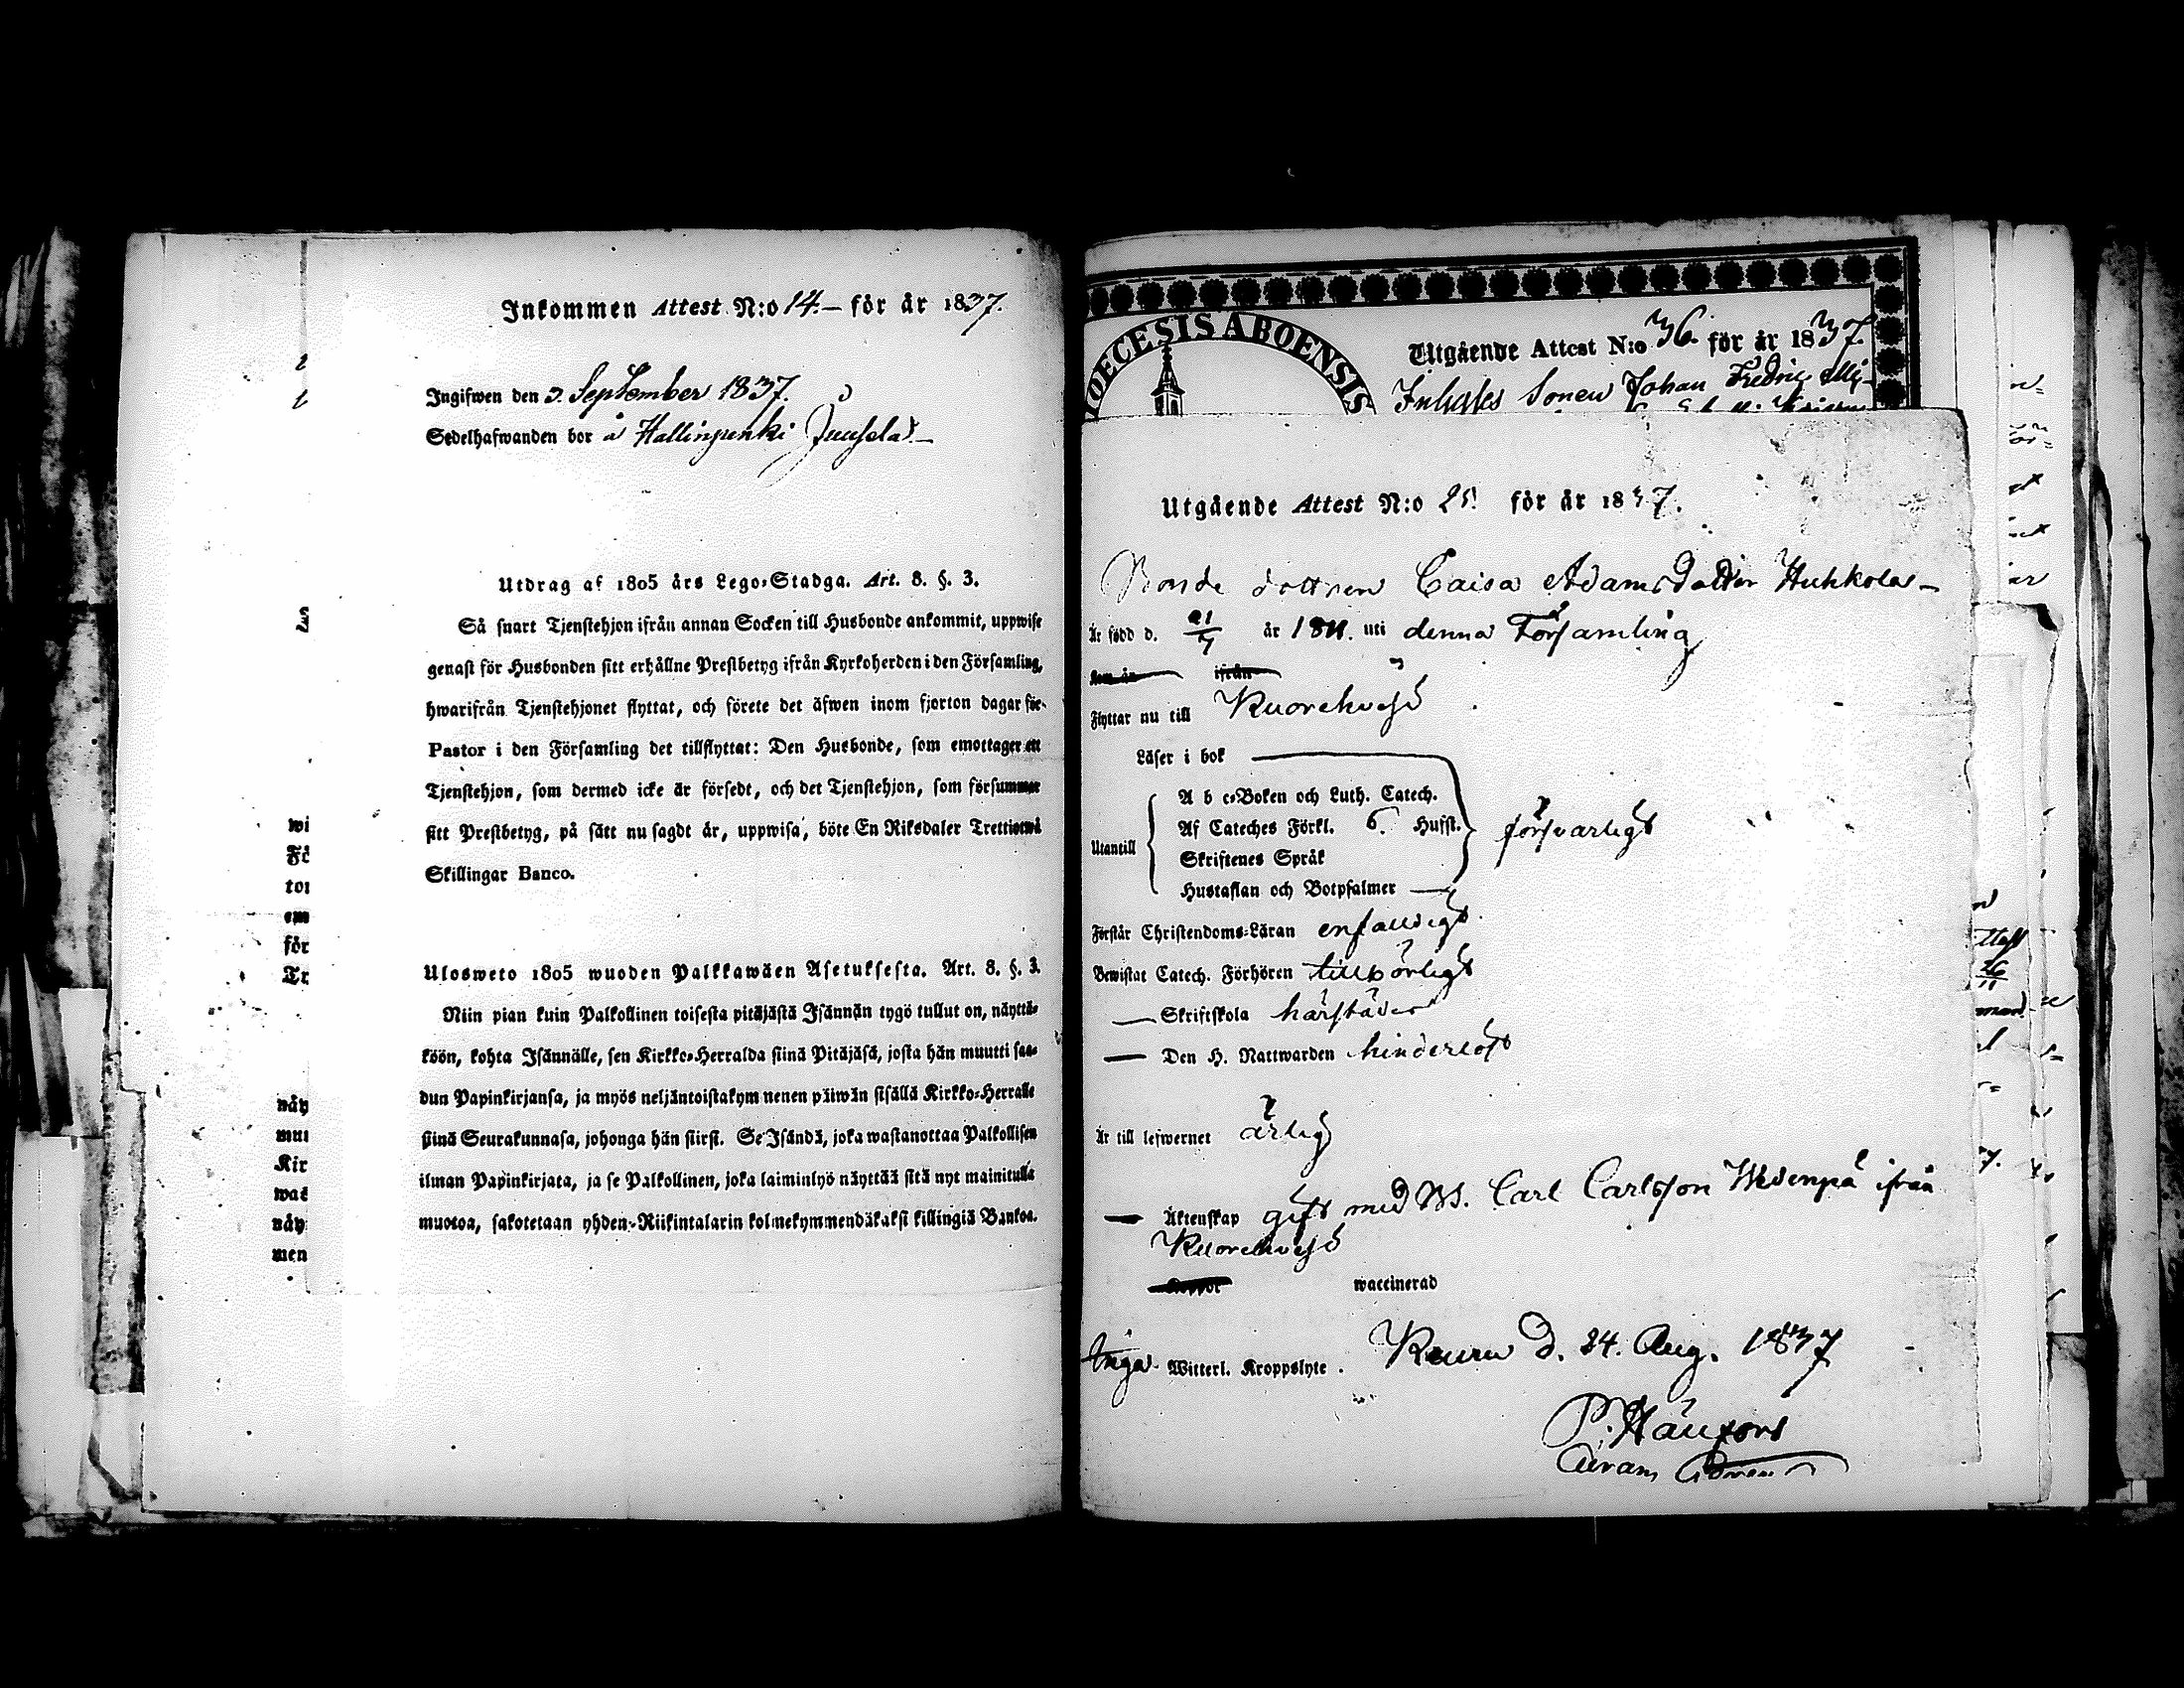 Inkommen Attest N:o 14.— för år 1837.
Ingifwen den 3. September 1837.
Sedelhafwanden bor å Hallinpenki Juusela.—
Utdrag af 1805 års Lego-Stadga. Art. 8. §. 3.
Så snart Tjenstehjon ifrån annan Socken till Husbonde ankommit, uppwise
genast för Husbonden sitt erhållne Prestbetyg ifrån Kyrkoherden i den Församling,
hwarifrån Tjenstehjonet flyttat, och förete det äfwen inom fjorton dagar för
Pastor i den Församling det tillflyttat: Den Husbonde, som emottager ett
Tjenstehjon, som dermed icke är försedt, och det Tjenstehjon, som försummar
sitt Prestbetyg, på sätt nu sagdt är, uppwisa, böte En Riksdaler Trettiotwå
Skillingar Banco.
Ulosweto 1805 wuoden Palkkawäen Asetuksesta. Art. 8. §. 3.
Niin pian kuin Palkollinen toisesta pitäjästä Isännän tygö tullut on, näyttä-
köön, kohta Isännälle, sen Kirkko-Herralda siinä Pitäjäsä, josta hän muutti saa-
dun Papinkirjansa, ja myös neljäntoistakym nenen päiwän sisällä Kirkko-Herralle
siinä Seurakunnasa, johonga hän siirst. Se Isändä, joka wastanottaa Palkollisen
ilman Papinkirjata, ja se Palkollinen, joka laiminlyö näyttää sitä nyt mainitulla
muotoa, sakotetaan yhden-Riikintalarin kolmekymmendäkaksi killingiä Bankoa.
wi
Fö
tor
em
för
Tr
näy
muu
Kir
was
näy
men
DIOECESIS ABOENSIS
Utgående Attest N:o 36. för år 1837.
Inhyses Sonen Johan Fredric
Utgående Attest N:o 25. för år 1837.
Bonde dottren Caisa Adamsdotter Huhkola—
Är född d. 21/7 år 1811. uti denna Församling
Kom än ifrån
Flyttar nu till Kuorehvesi
Läser i bok
Utantill
A b c-Boken och Luth. Catech.
Af Cateches Förkl. 6. Hufst.
Skriftenes Språk
Hustaflan och Botpsalmer
försvarligt
Förstår Christendoms-Läran enfaldigt
Bewistat Catech. Förhören tillbörligt
— Skriftskola härstädes
— Den H. Nattwarden hinderlöst
Är till lefwernet ärlig
— Äktenskap gift med Carl Carlsson ifrån
Kuorehvesi
Koppor waccinerad
Inga Witterl. Kroppslyte. Keuru d. 24. Aug. 1837